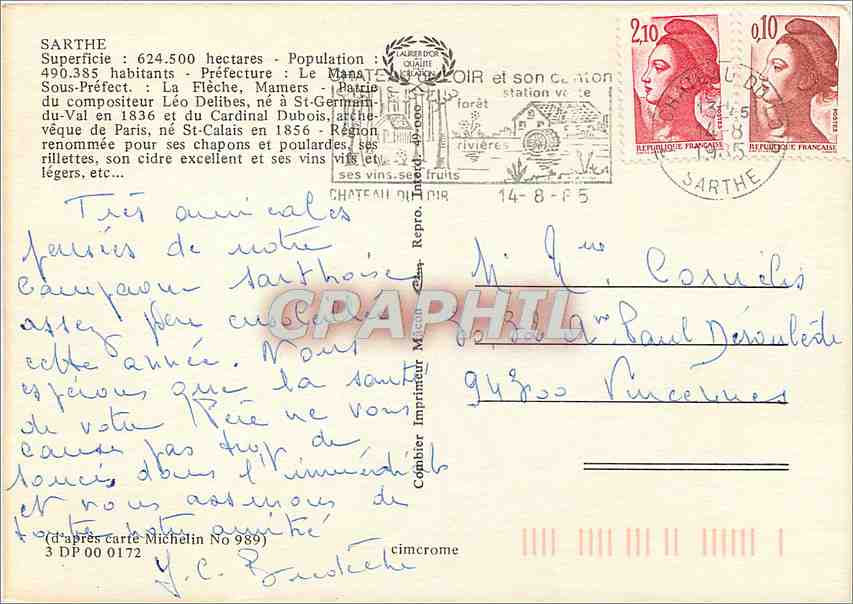 SARTHE
Superficie : 624.500 hectares - Population :
490.385 habitants - Préfecture : Le Mans
Sous-Préfect. : La Flèche, Mamers - Patrie
du compositeur Léo Delibes, né à St-Germain-
du-Val en 1836 et du Cardinal Dubois, arche-
vêque de Paris, né St-Calais en 1856 - Région
renommée pour ses chapons et poulardes, ses
rillettes, son cidre excellent et ses vins vifs et
légers, etc...
LAURIER D'OR
QUALITÉ
CRÉATION
CHATEAU DU LOIR et son canton
station verte
forêt
rivières
ses vins, ses fruits
CHATEAU DU LOIR 14-8-85
2,10
POSTES
REPUBLIQUE FRANÇAISE
0,10
POSTES
REPUBLIQUE FRANÇAISE
CHATEAU DU LOIR
14-8
1985
SARTHE
Très amicales
pensées de notre
campagne sarthoise
assez peu ensoleillée
cette année. Nous
espérons que la santé
de votre Père ne vous
cause pas trop de
soucis dans l'immédiat
et vous assurons de
toute notre amitié
M. Mme Cornélis
Ave Paul Déroulède
94300 Vincennes
CPARPHIL
Combier Imprimeur Mâcon Repro. Interd. 49-000
(d'après carte Michelin No 989)
3 DP 00 0172
cimcrome
J. C.